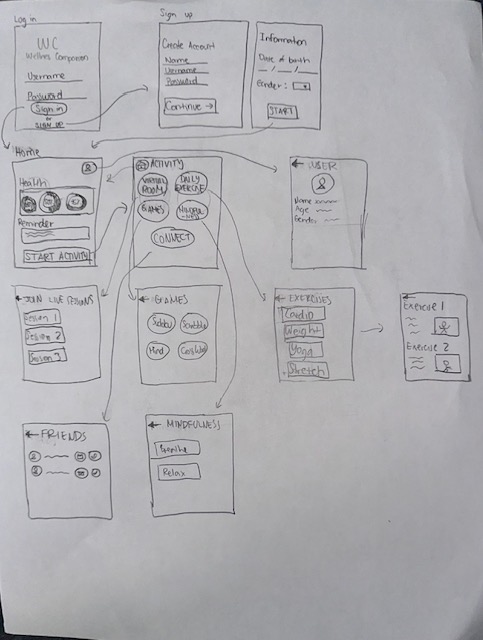 Log in
Sign up
WC
Wellness Companion
Username
Password
Sign in
or
SIGN UP
Create Account
Name
Username
Password
Continue →
Information
Date of birth
_/_/_
Gender:
START
Home
Health
Reminder
START ACTIVITY
ACTIVITY
VIRTUAL ROOM
DAILY EXERCISE
GAMES
CONNECT
← USER
Name
Age
Gender
← JOIN LIVE SESSIONS
Session 1
Session 2
Session 3
← GAMES
Scrabble
Mind
← EXERCISES
Cardio
Weight
Yoga
Stretch
←
Exercise 1
Exercise 2
← FRIENDS
← MINDFULNESS
Breathe
Relax